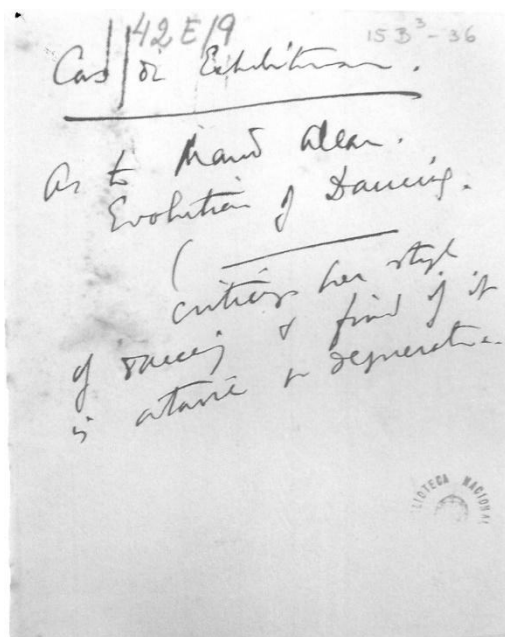 42 E/9
15 B³-36
Cas of Exhibitionism.
As to Maud Allan.
Evolution of Dancing.
(
criticize her style
of dancing & find if it
is atavic or degenerative.
BIBLIOTECA NACIONAL